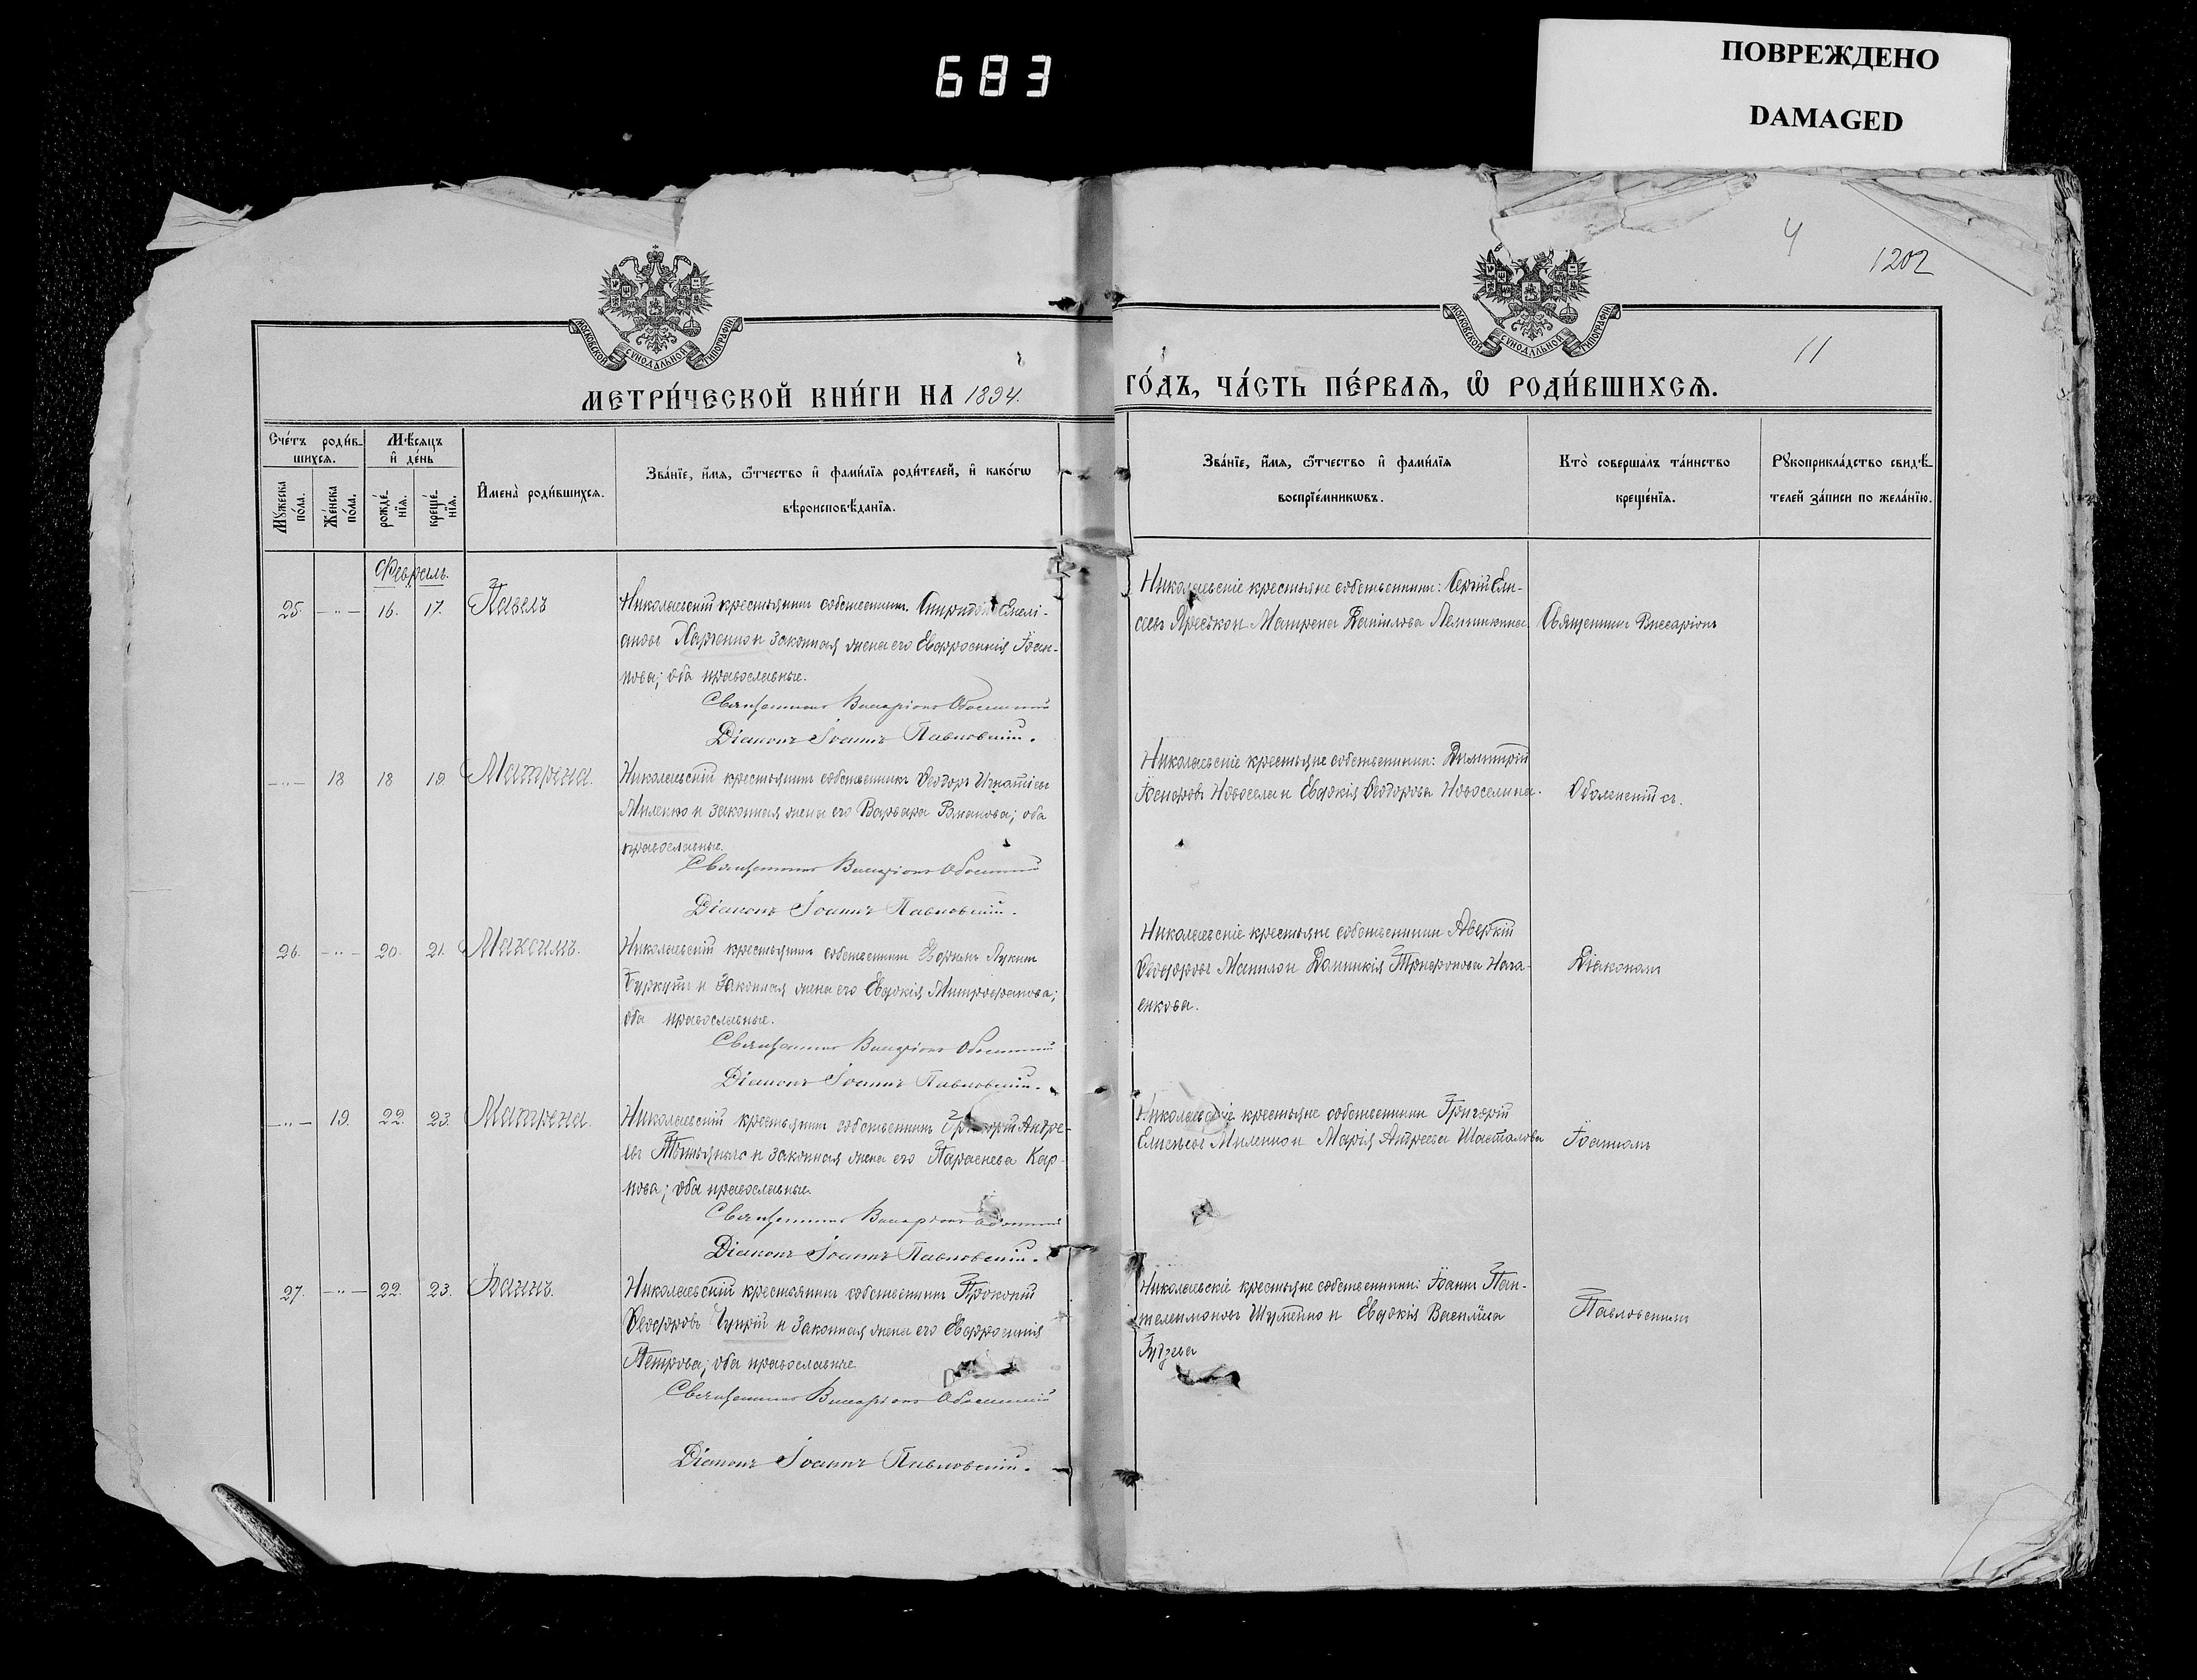 683
ПОВРЕЖДЕНО
DAMAGED
4
1202
11
МОСКОВСКОЙ СУНОДАЛЬНОЙ ТИПОГРАФІИ
МОСКОВСКОЙ СУНОДАЛЬНОЙ ТИПОГРАФІИ
МЕТРИ́ЧЕСКОЙ КНИ́ГИ НА 1894.
ГО́ДЪ, ЧА́СТЬ ПЕ́РВАѦ, Ѽ РОДИ́ВШИХСѦ.
Сче́тъ роди́в-
шихсѧ.
Мѣ́сѧцъ
и҆ де́нь
Мꙋ́жеска по́ла.
Же́нска по́ла.
рожде́нїѧ.
креще́нїѧ.
И҆мена̀ роди́вшихсѧ.
Зва́нїе, и҆́мѧ, ѻ҆́тчество и҆ фами́лїѧ роди́телей, и҆ како́гѡ
вѣроисповѣ́данїѧ.
Зва́нїе, и҆́мѧ, ѻ҆́тчество и҆ фами́лїѧ
воспрїе́мникѡвъ.
Кто̀ соверша́лъ та́инство
креще́нїѧ.
Рꙋкоприкла́дство свидѣ́-
телей за́писи по жела́нїю.
Февраль.
25. — " — 16. 17. Павелъ
Николаевскій крестьянинъ собственникъ Спиридонъ Емелі-
ановъ Харченко и законная жена его Евфросинія Іоан-
нова; оба православные.
Священникъ Виссаріонъ Оболенскій
Діаконъ Іоаннъ Павловскій.
Николаевскіе крестьяне собственники: Сергій Ели-
сеевъ и Матрена Даніилова
Священникъ Виссаріонъ
— " — 18 18 19. Матрена.
Николаевскій крестьянинъ собственникъ Ѳеодоръ Игнатіевъ
Миленко и законная жена его Варвара Романова; оба
православные.
Священникъ Виссаріонъ Оболенскій
Діаконъ Іоаннъ Павловскій.
Николаевскіе крестьяне собственники: Димитрій
Новосела и Евдокія Ѳеодорова Новоселина.
Оболенскій съ
26. — " — 20. 21. Максимъ.
Николаевскій крестьянинъ собственникъ Лукинъ
и законная жена его Евдокія Митрофанова;
оба православные.
Священникъ Виссаріонъ Оболенскій
Діаконъ Іоаннъ Павловскій.
Николаевскіе крестьяне собственники Аверкій
и Домникія Трифонова
енкова.
Діакономъ
— " — 19. 22. 23. Матрена.
Николаевскій крестьянинъ собственникъ Григорій Андре-
евъ и законная жена его Параскева Кар-
пова; оба православные.
Священникъ Виссаріонъ Оболенскій
Діаконъ Іоаннъ Павловскій.
Николаевскіе крестьяне собственники Григорій
Миленко и Марія Андреева Шаталова
Іоанномъ
27. — " — 22. 23. Іоаннъ.
Николаевскій крестьянинъ собственникъ Прокопій
Чуприй и законная жена его Евфросинія
Петрова; оба православные
Священникъ Виссаріонъ Оболенскій
Діаконъ Іоаннъ Павловскій.
Николаевскіе крестьяне собственники: Іоаннъ Пан-
телеимоновъ Шумейко и Евдокія Васильева
Павловскимъ